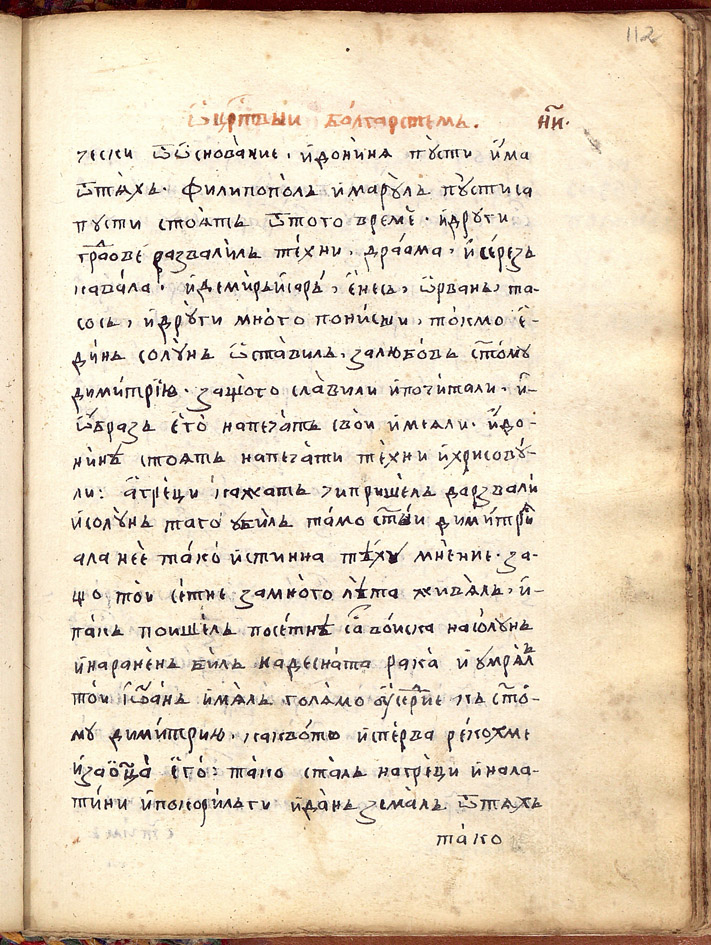 112
Ѿ црⷭ҇твыи болгарстемъ. н҃и.
чески ѿ ѡснова́ние. и дони́нѧ пусти и҆ма
ѿ тѧ́хъ. филипопо́лъ и҆ марꙋ̀лѧ пꙋ́сти са
пусти стоѧ́тъ ѿ то́го времѐ. и дрꙋ́ги
гра́дове развали́лъ те́хни, дра́ама, и҆ се́резъ
кава́ла. и демиръ хиса́ръ, е҆́несъ, ѡ҆рванъ, та-
сосъ, и дрꙋ̀ги мно́го пони́сши, то́кмо е҆-
ди́нъ солꙋ́нъ ѡ҆ста́вилъ. за любо́въ ст҃о́мꙋ
дими́трїю. защо́то сла́вили и почи́тали. и҆
ѻ҆́бразъ е҆го̀ на печа́тъ сво́и и҆ме́али. и҆ до-
ни́нѣ стоѧ́тъ на печа́ти те́хни и҆ хрисовꙋ́-
ли: а҆ гре́ци ка́жатъ чи прише́лъ да разва́ли
и҆ солꙋ́нъ та го ꙋби́лъ та́мо ст҃ы́и дими́трїи
ала не́е та́ко и҆стинна тѣ́хꙋ мне́ние. за-
що то́и се́тне за мно́го лѣ́та живѧ́лъ, и҆
па́къ поише́лъ посе́тнѣ са во́иска на со́лꙋнъ
и҆ нара́ненъ би́лъ на десна́та ра́ка и҆ умрѧ́лъ
то́и і҆ѡа́нъ и҆мѧ́лъ голѧ́мо ᲂу҆се́рⷣие къ ст҃о́-
мꙋ дими́трию. какво́то и҆спе́рва реко́хме
и҆ за ѻ҆ц҃а̀ е҆го̀: та́ко ста́лъ на гре́ци и҆ на ла-
ти́ни и҆ покори́лъ ги и да́нъ зема́лъ ѿ тѧ́хъ
та́ко